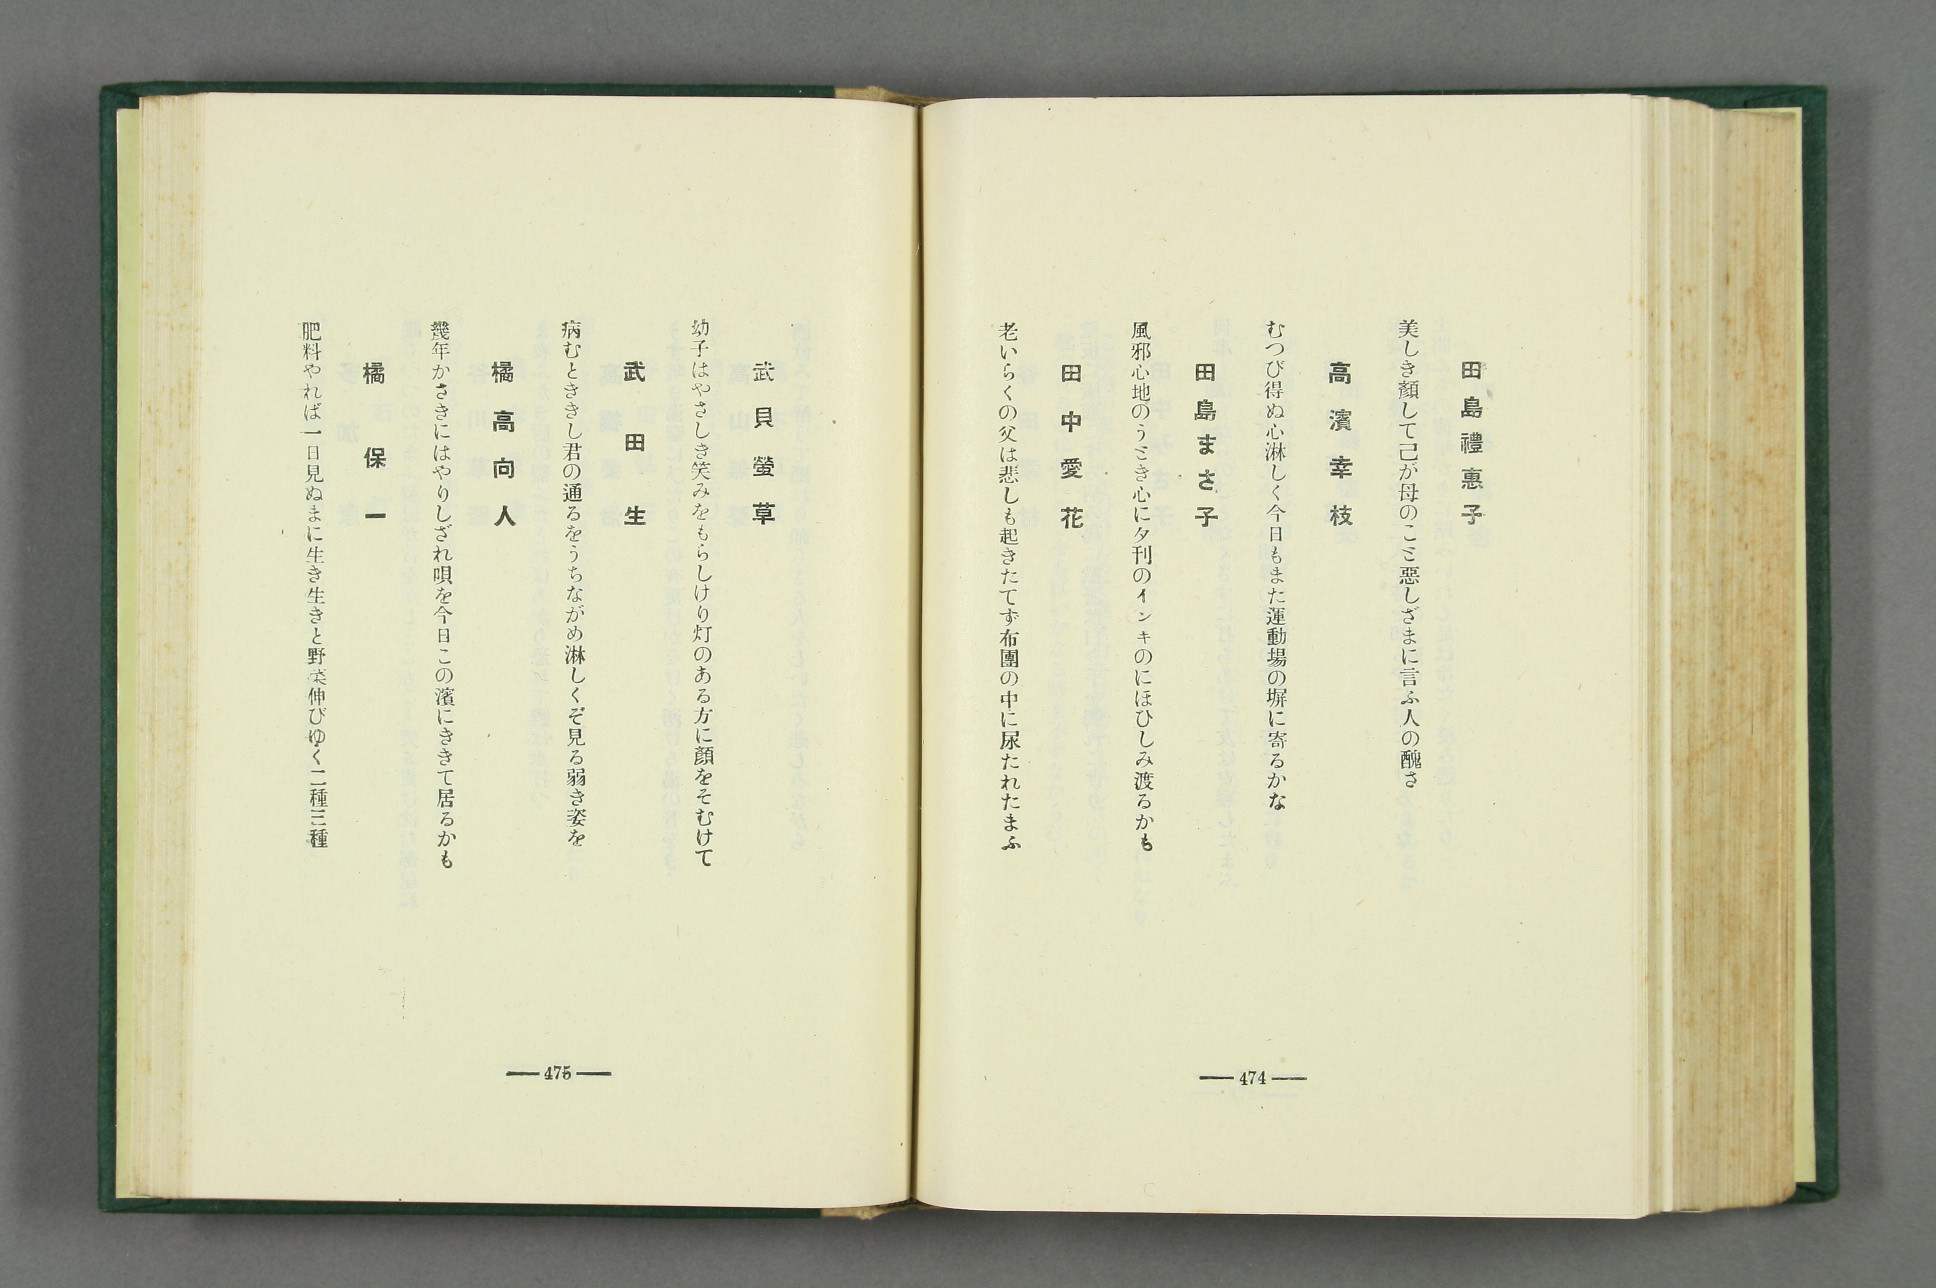 田島禮惠子
美しき顏して己が母のこと惡しざまに言ふ人の醜さ
高濱幸枝
むつび得ぬ心淋しく今日もまた運動場の塀に寄るかな
田島まさ子
風邪心地のうとき心に夕刊のインキのにほひしみ渡るかも
田中愛花
老いらくの父は悲しも起きたてず布團の中に尿たれたまふ
474
武貝螢草
幼子はやさしき笑みをもらしけり灯のある方に顏をそむけて
武田生
病むとききし君の通るをうちながめ淋しくぞ見る弱き姿を
橘高向人
幾年かさきにはやりしざれ唄を今日この濱にききて居るかも
橘保一
肥料やれば一日見ぬまに生き生きと野菜伸びゆく二種三種
475